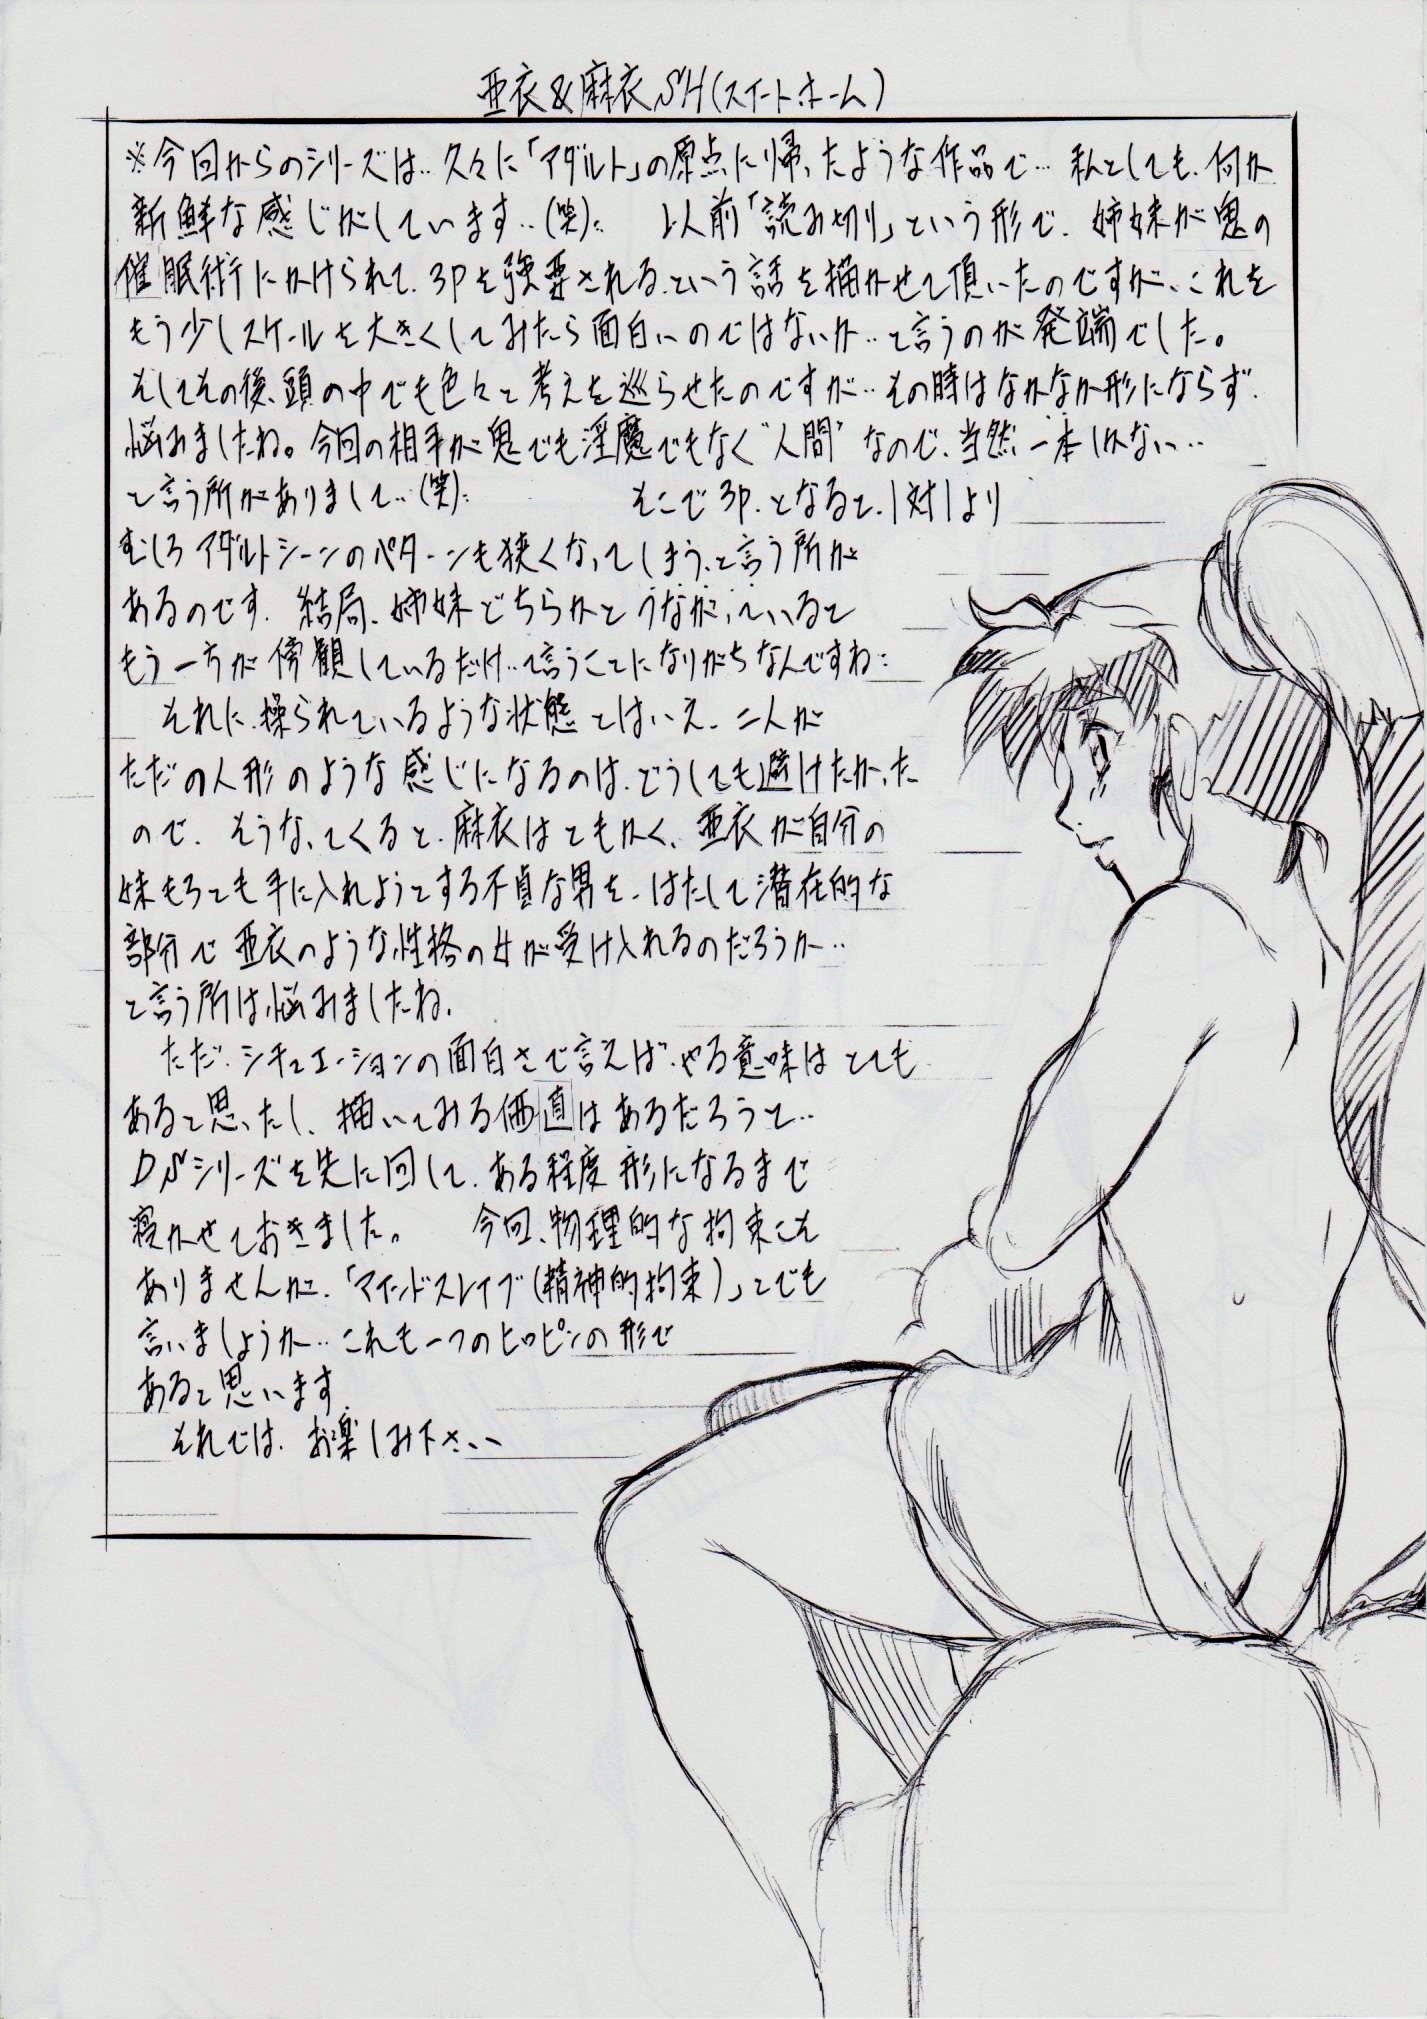 亜衣&麻衣SH(スイートホーム)
※今回からのシリーズは‥久々に「アダルト」の原点に帰ったような作品で…私としても、何か
新鮮な感じがしています‥(笑)‥ 以前「読み切り」という形で、姉妹が鬼の
催眠術にかけられて、3Pを強要される、という話を描かせて頂いたのですが、これを
もう少しスケールを大きくしてみたら面白いのではないか‥と言うのが発端でした。
そしてその後、頭の中でも色々と考えを巡らせたのですが‥その時はなかなか形にならず、
悩みましたね。今回の相手が鬼でも淫魔でもなく"人間"なので、当然、一本しかない‥
と言う所がありまして‥(笑)‥ そこで3P、となると、1対1より
むしろアダルトシーンのパターンも狭くなってしまう、と言う所が
あるのです。結局、姉妹どちらかとつながっていると
もう一方が傍観しているだけ‥て言うことになりがちなんですね‥
それに、操られているような状態とはいえ、二人が
ただの人形のような感じになるのは、どうしても避けたかった
ので、そうなってくると、麻衣はともかく、亜衣が自分の
妹もろとも手に入れようとする不貞な男を、はたして潜在的な
部分で亜衣のような性格の女が受け入れるのだろうか‥
と言う所は悩みましたね。
ただ、シチュエーションの面白さで言えば、やる意味はとても
あると思ったし、描いてみる価値はあるだろうと…
DSシリーズを先に回して、ある程度形になるまで
寝かせておきました。 今回、物理的な拘束こそ
ありませんが、「マインドスレイブ(精神的拘束)」とでも
言いましょうか‥これも一つのヒロピンの形で
あると思います
それでは、お楽しみ下さい